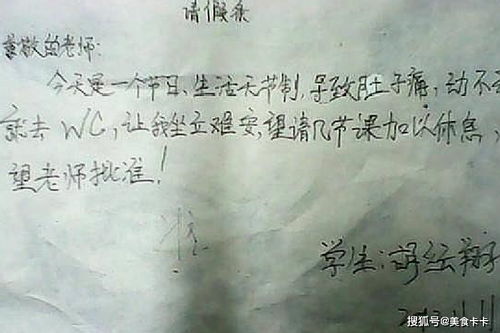 请假条
尊敬的老师:
今天是一个节日,生活无节制,导致肚子痛,动不
就去WC,让我坐立难安,望请几节课加以休息,
望老师批准!
准
学生:
搜狐号@美食卡卡